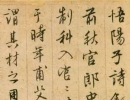 悟陽子詩
前秋官郎中
制科入官
于時年甫
謂其材之周